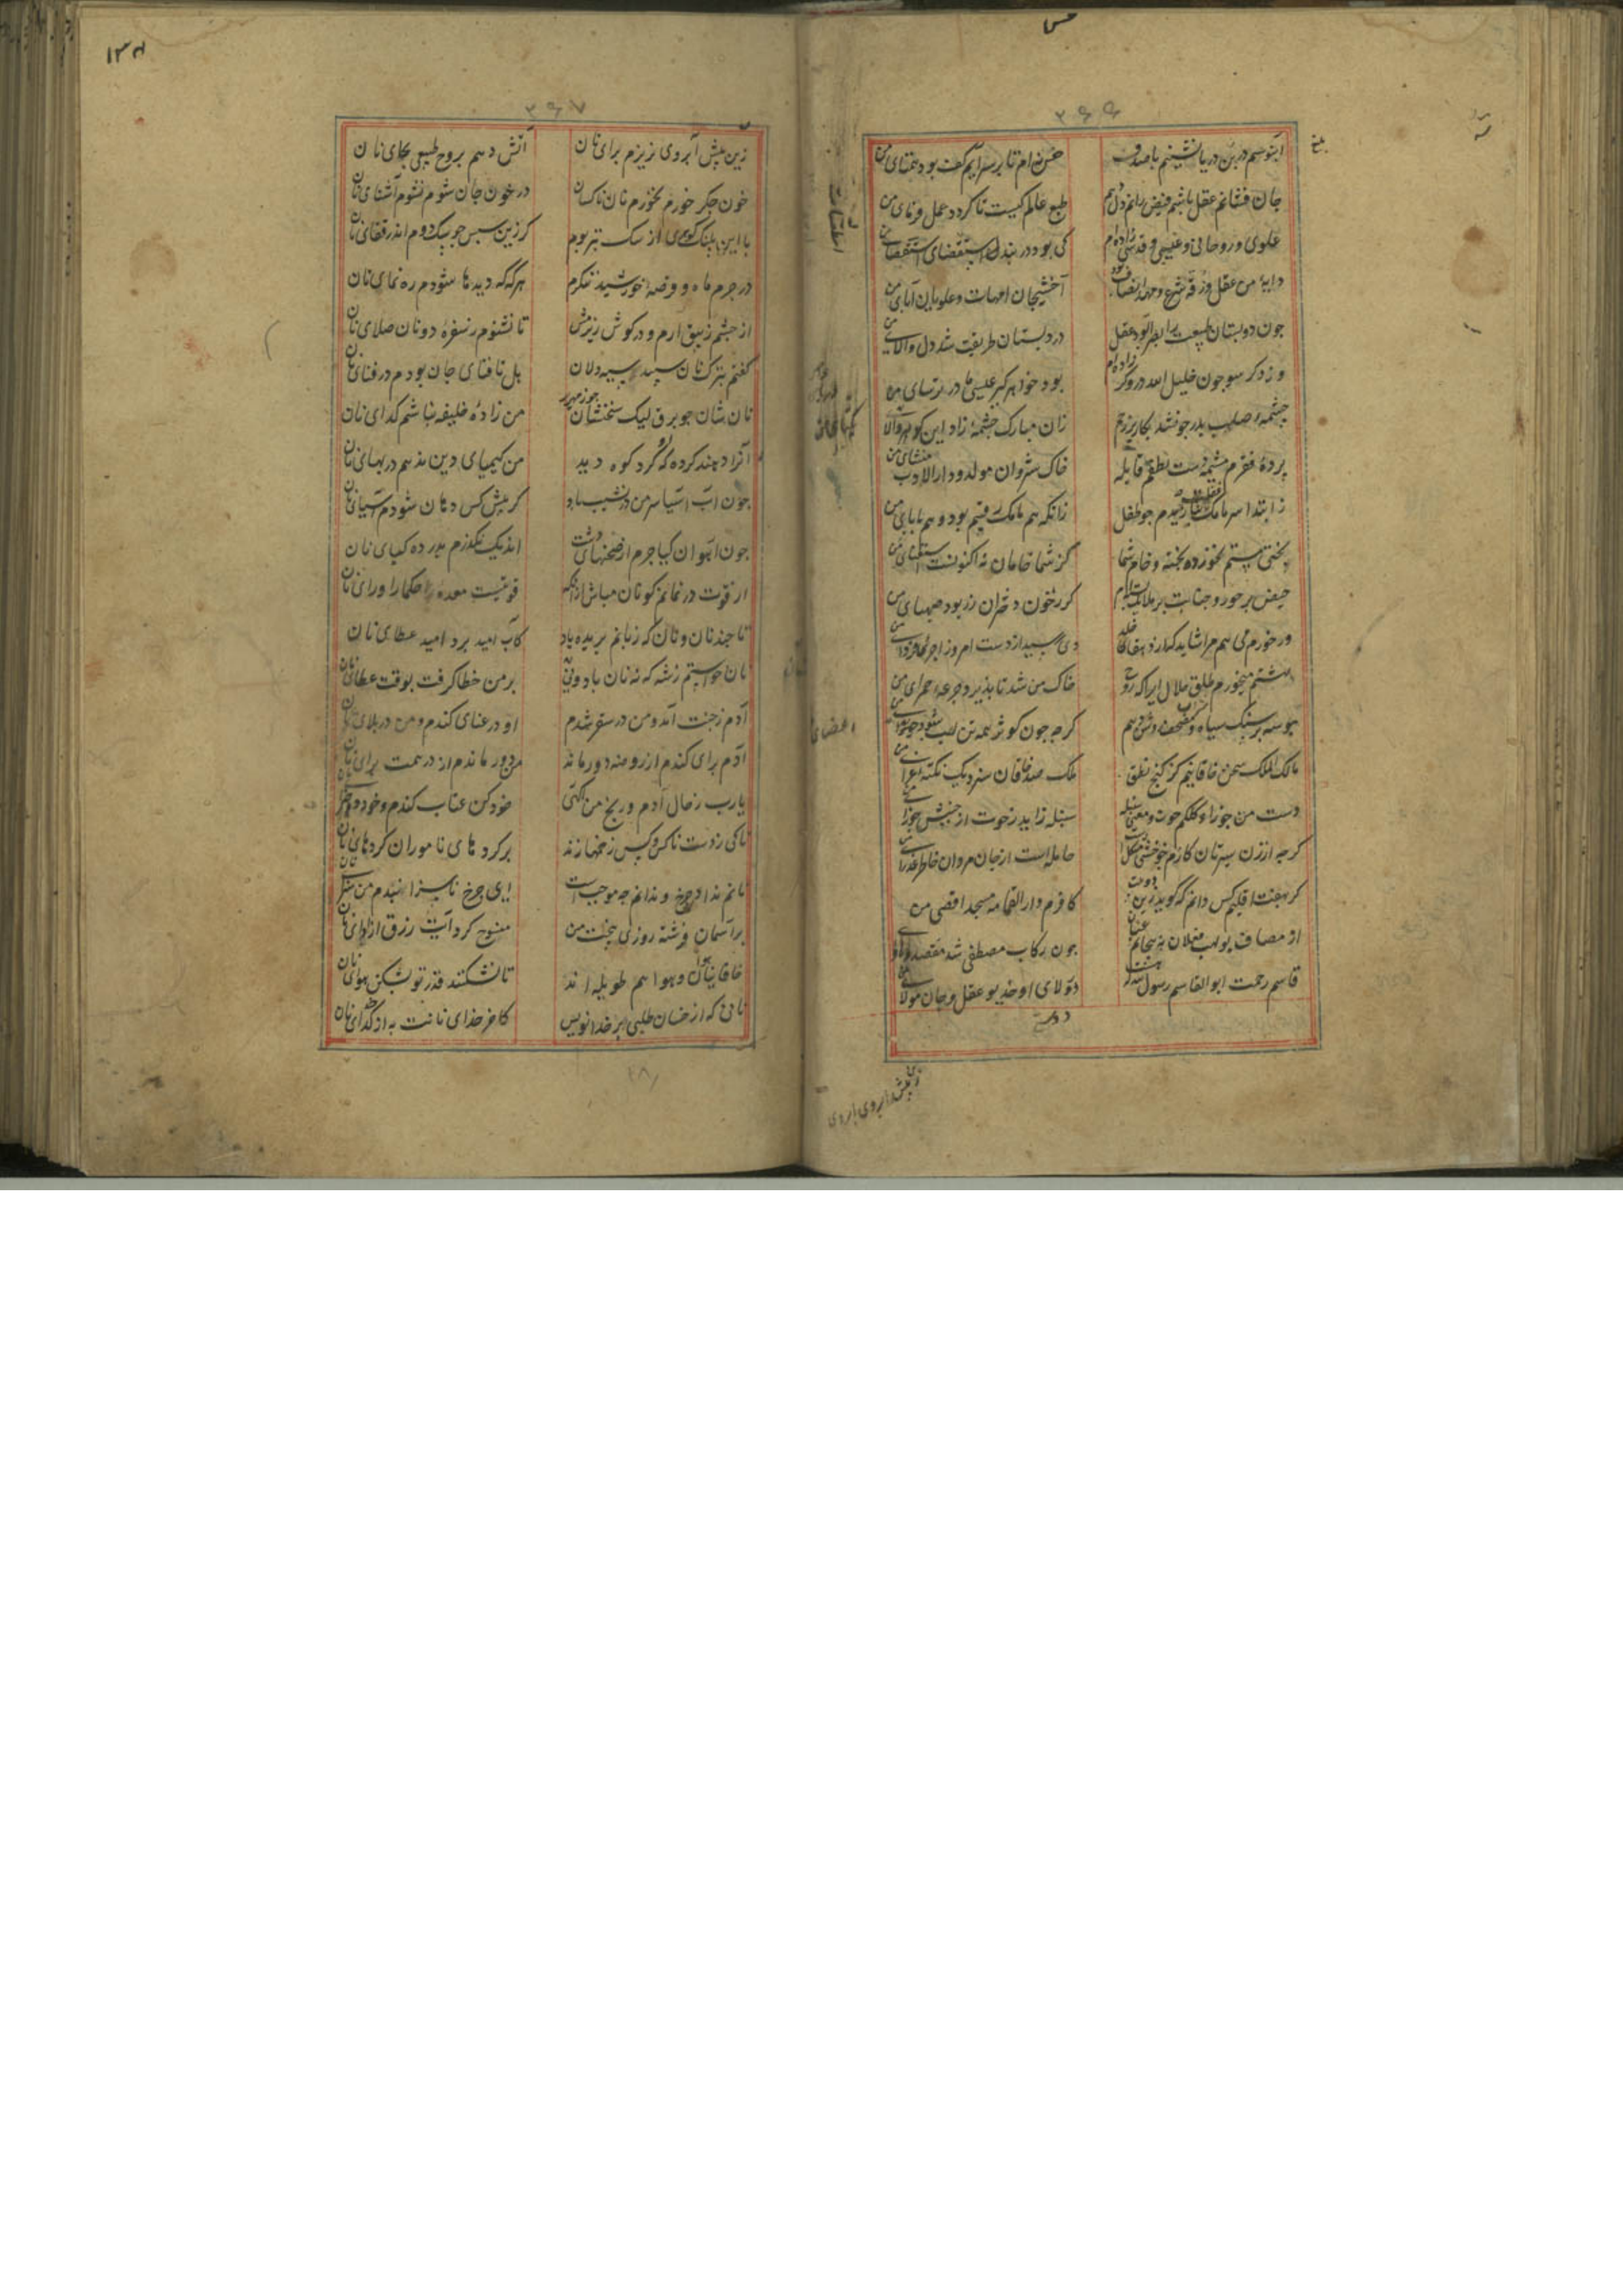 ۳۶۶
آبنوسم در بن دریا نشینم با صدف
خس نه‌ام تا بر سر آیم کف بود همتای من
جان فشانم عقل پاشم فیض رانم دل دهم
طبع عالم کیست تا گردد عمل فرمای من
علوی و روحانی و غیبی و قدسی زاده‌ام
کی بود در بند استقصای من
دایهٔ من عقل و زقه شرع و مهد انصاف بود
آخشیجان امهات و علویان آبای من
چون دوبستان طبیعت را
در دبستان طریقت شد دل والای من
وز دگر سو چون خلیل الله دروگر زاده‌ام
بود خواهرگیر عیسی مادر ترسای من
چشمهٔ صلب پدر چون شد بکاریز رحم
زان مبارک چشمه زاد این گوهر والای من
پردهٔ فقرم مشیمه دست لطفم قابله
خاک شروان مولد و دارالادب منشای من
ز ابتدا سرمامک غفلت نبازیدم چو طفل
زانکه هم مامک رقیبم بود و هم بابای من
بختی مستم نخورده پخته و خام شما
کز شما خامان نه اکنونست استغنای من
حیض بر حور و جنابت بر ملایک بسته‌ام
گر ز خون دختران رز بود صهبای من
ور خورم می هم مرا شاید که از دهقان خلد
دی رسید از دست امروز اجری فردای من
بهشتم میخورم طلق حلال ایرا که روح
خاک من شد تا پذیرد جرعهٔ حمرای من
بوسه بر سنگ سیاه و مصحف روشن دهم
گرچه چون کوثر همه تن لب شود اجزای من
مالک الملک سخن خاقانیم کز گنج نطق
ملک صد خاقان سزد یک نکتهٔ غرای من
دست من جوزا و کلکم حوت و معنی سنبله
سنبله زاید ز حوت از جنبش جوزای من
گرچه از زن سیرتان کارم چو خنثی مشکل است
حامله است از جان مردان خاطر عذرای من
گر بهفت اقلیم کس دانم که گوید زین دو بیت
کافرم دارالقمامه مسجد اقصی من
از مصاف بولهب فعلان نپیچانم عنان
چون رکاب مصطفی شد مقصد و ملجای من
قاسم رحمت ابوالقاسم رسول الله که هست
در ولای او خدیو عقل و جان مولای من
۳۶۷
زین بیش آبروی نریزم برای نان
آتش دهم بروح طبیعی بجای نان
خون جگر خورم نخورم نان ناکسان
در خون جان شوم نشوم آشنای نان
با این پلنگ گوهری از سگ بتر بوم
گر زین سپس چو سگ دوم اندر قفای نان
در جرم ماه و قرصهٔ خورشید ننگرم
هرگه که دیدها شودم ره نمای نان
از چشم زیبق آرم و در گوش ریزمش
تا نشنوم ز سفرهٔ دونان صلای نان
گفتم بترک نان سپید سیه دلان
هل تا فنای جان بودم در فنای نان
نان شان چو برف لیک سخنشان چو زمهریر
من زادهٔ خلیفه نباشم گدای نان
آنرا دهند گرده که او گرد کوه دید
من کیمیای دین ندهم در بهای نان
چون آب آسیا سر من در نشیب باد
گر پیش کس دهان شودم آسیای نان
چون آهوان گیا چرم از صحنهای دشت
اندیک نگذرم بدر ده کیای نان
از قوت درنمانم گو نان مباش از آنک
قوتیست معده حکما را ورای نان
تا چند نان و نان که زبانم بریده باد
کآب امید برد امید عطای نان
آدم ز جنت آمد و من در سقر شدم
او در عنای گندم و من در بلای نان
آدم برای گندم از روضه دور ماند
من دور ماندم از در همت برای نان
یا رب ز حال آدم و رنج من آگهی
خود کن عتاب گندم و خود ده جزای نان
تا کی ز دست ناکس و کس زخمها زند
بر گردهای ناموران گردهای نان
نانم نداد چرخ و ندانم چه موجبست
ای چرخ ناسزا نبدم من سزای نان
بر آسمان فرشته روزی ببخت من
منسوخ کرد آیت رزق از ادای نان
خاقانیا هوان و هوا هم طویله‌اند
تا نشکنند قدر تو بشکن هوای نان
نانی که از خسان طلبی بر خدا نویس
کآخر خدای نانت به از کدخدای نان